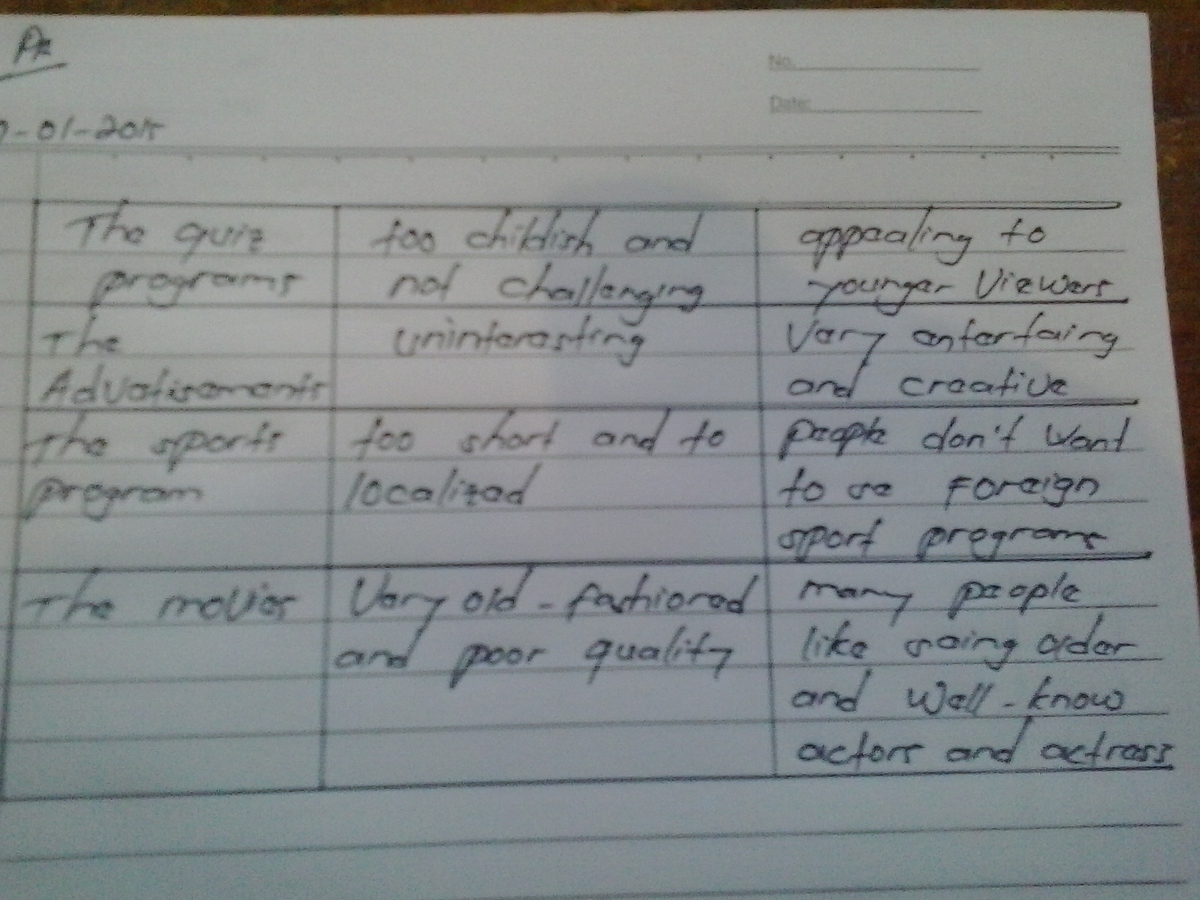 PR
No.
Date:
-01-2015
The quiz programs
too childish and not challenging
appealing to younger viewers
The Advatisements
uninteresting
Very entertaing and creative
The sports program
too short and to localized
people don't want to se Foreign sport programs
The movies
Very old-fashiored and poor quality
many people like seing older and well-know actors and actress